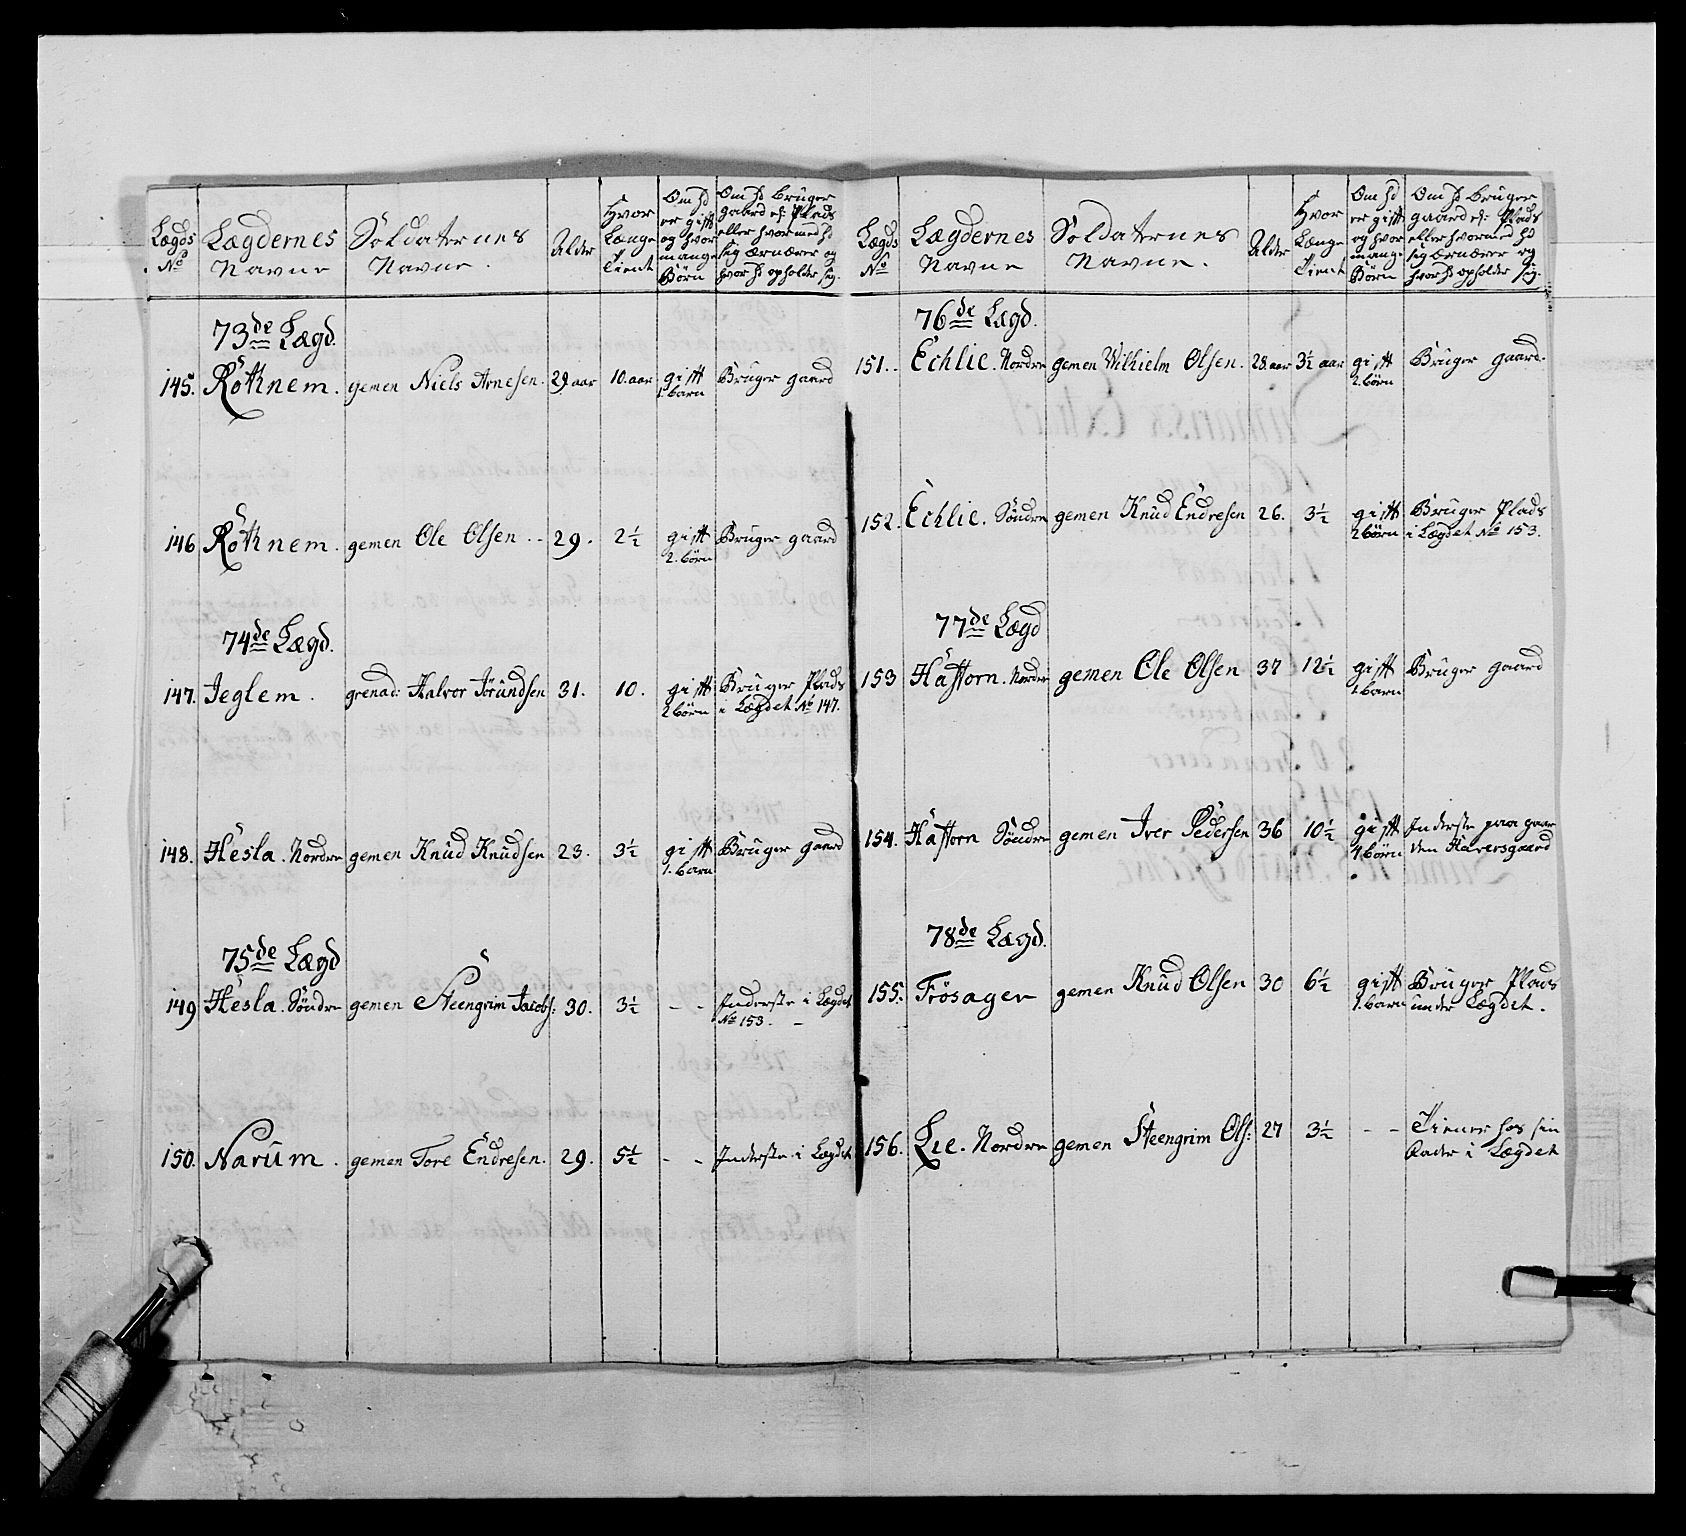 Lægds No
Lægdernes Navne
Soldaternes Navne.
Alder
Hvor Længe Tient
Om hd er gift og hvor mange Børn
Om hd bruger gaard el: Plads eller hvormed hd sig ernærer og hvor hd opholder sig.
73de Lægd.
145. Röthnem. gemen Niels Arnesen. 29 aar 10. aar gift 1. barn Bruger gaard
146 Röthnem. gemen Ole Olsen .. 29. 2½ gift 2. børn Bruger gaard
74de Lægd.
147. Jeglem. grenad: Halvor Jöründsen 31. 10. gift 2 börn Brüger Plads i Lægdet No 147.
148. Hesla. Nordre gemen Knüd Knudsen 23. 3½ gift 1. barn Brüger gaard
75de Lægd
149 Hesla. Söndre gemen Steengrim Jacobs: 30. 3½ - - Inderste i Lægdet No 153. -
150. Narüm. gemen Tore Endresen. 29. 5½ - - Inderste i Lægdet
Lægds No
Lægdernes Navne
Soldaternes Navne.
Alder
Hvor Længe Tient
Om hd er gift og hvor mange Börn
Om hd bruger gaard el: Plads eller hvormed hd sig ernærer og hvor hd opholder sig.
76de Lægd.
151.. Echlie. Nordre gemen Wilhielm Olsen. 28. aar 3½ aar gift 2. börn Brüger gaard.
152. Echlie. Söndre gemen Knüd Endresen 26. 3½ gift 2 börn Brüger Plads i Lægdet No 153.
77de Lægd
153 Haftorn. Nordre gemen Ole Olsen 37 12½ gift 1. barn Brüger gaard
154. Haftorn Söndre gemen Iver Pedersen 36 10½ gift 4. börn Inderste paa gaarden Haversgaard
78de Lægd.
155. Frösager gemen Knüd Olsen 30 6½ gift 1. barn Brüger Plads under Lægdet.
156. Lie. Nordre gemen Steengrim Ols: 27 3½ - - Tiener hos sin Fader i Lægdet